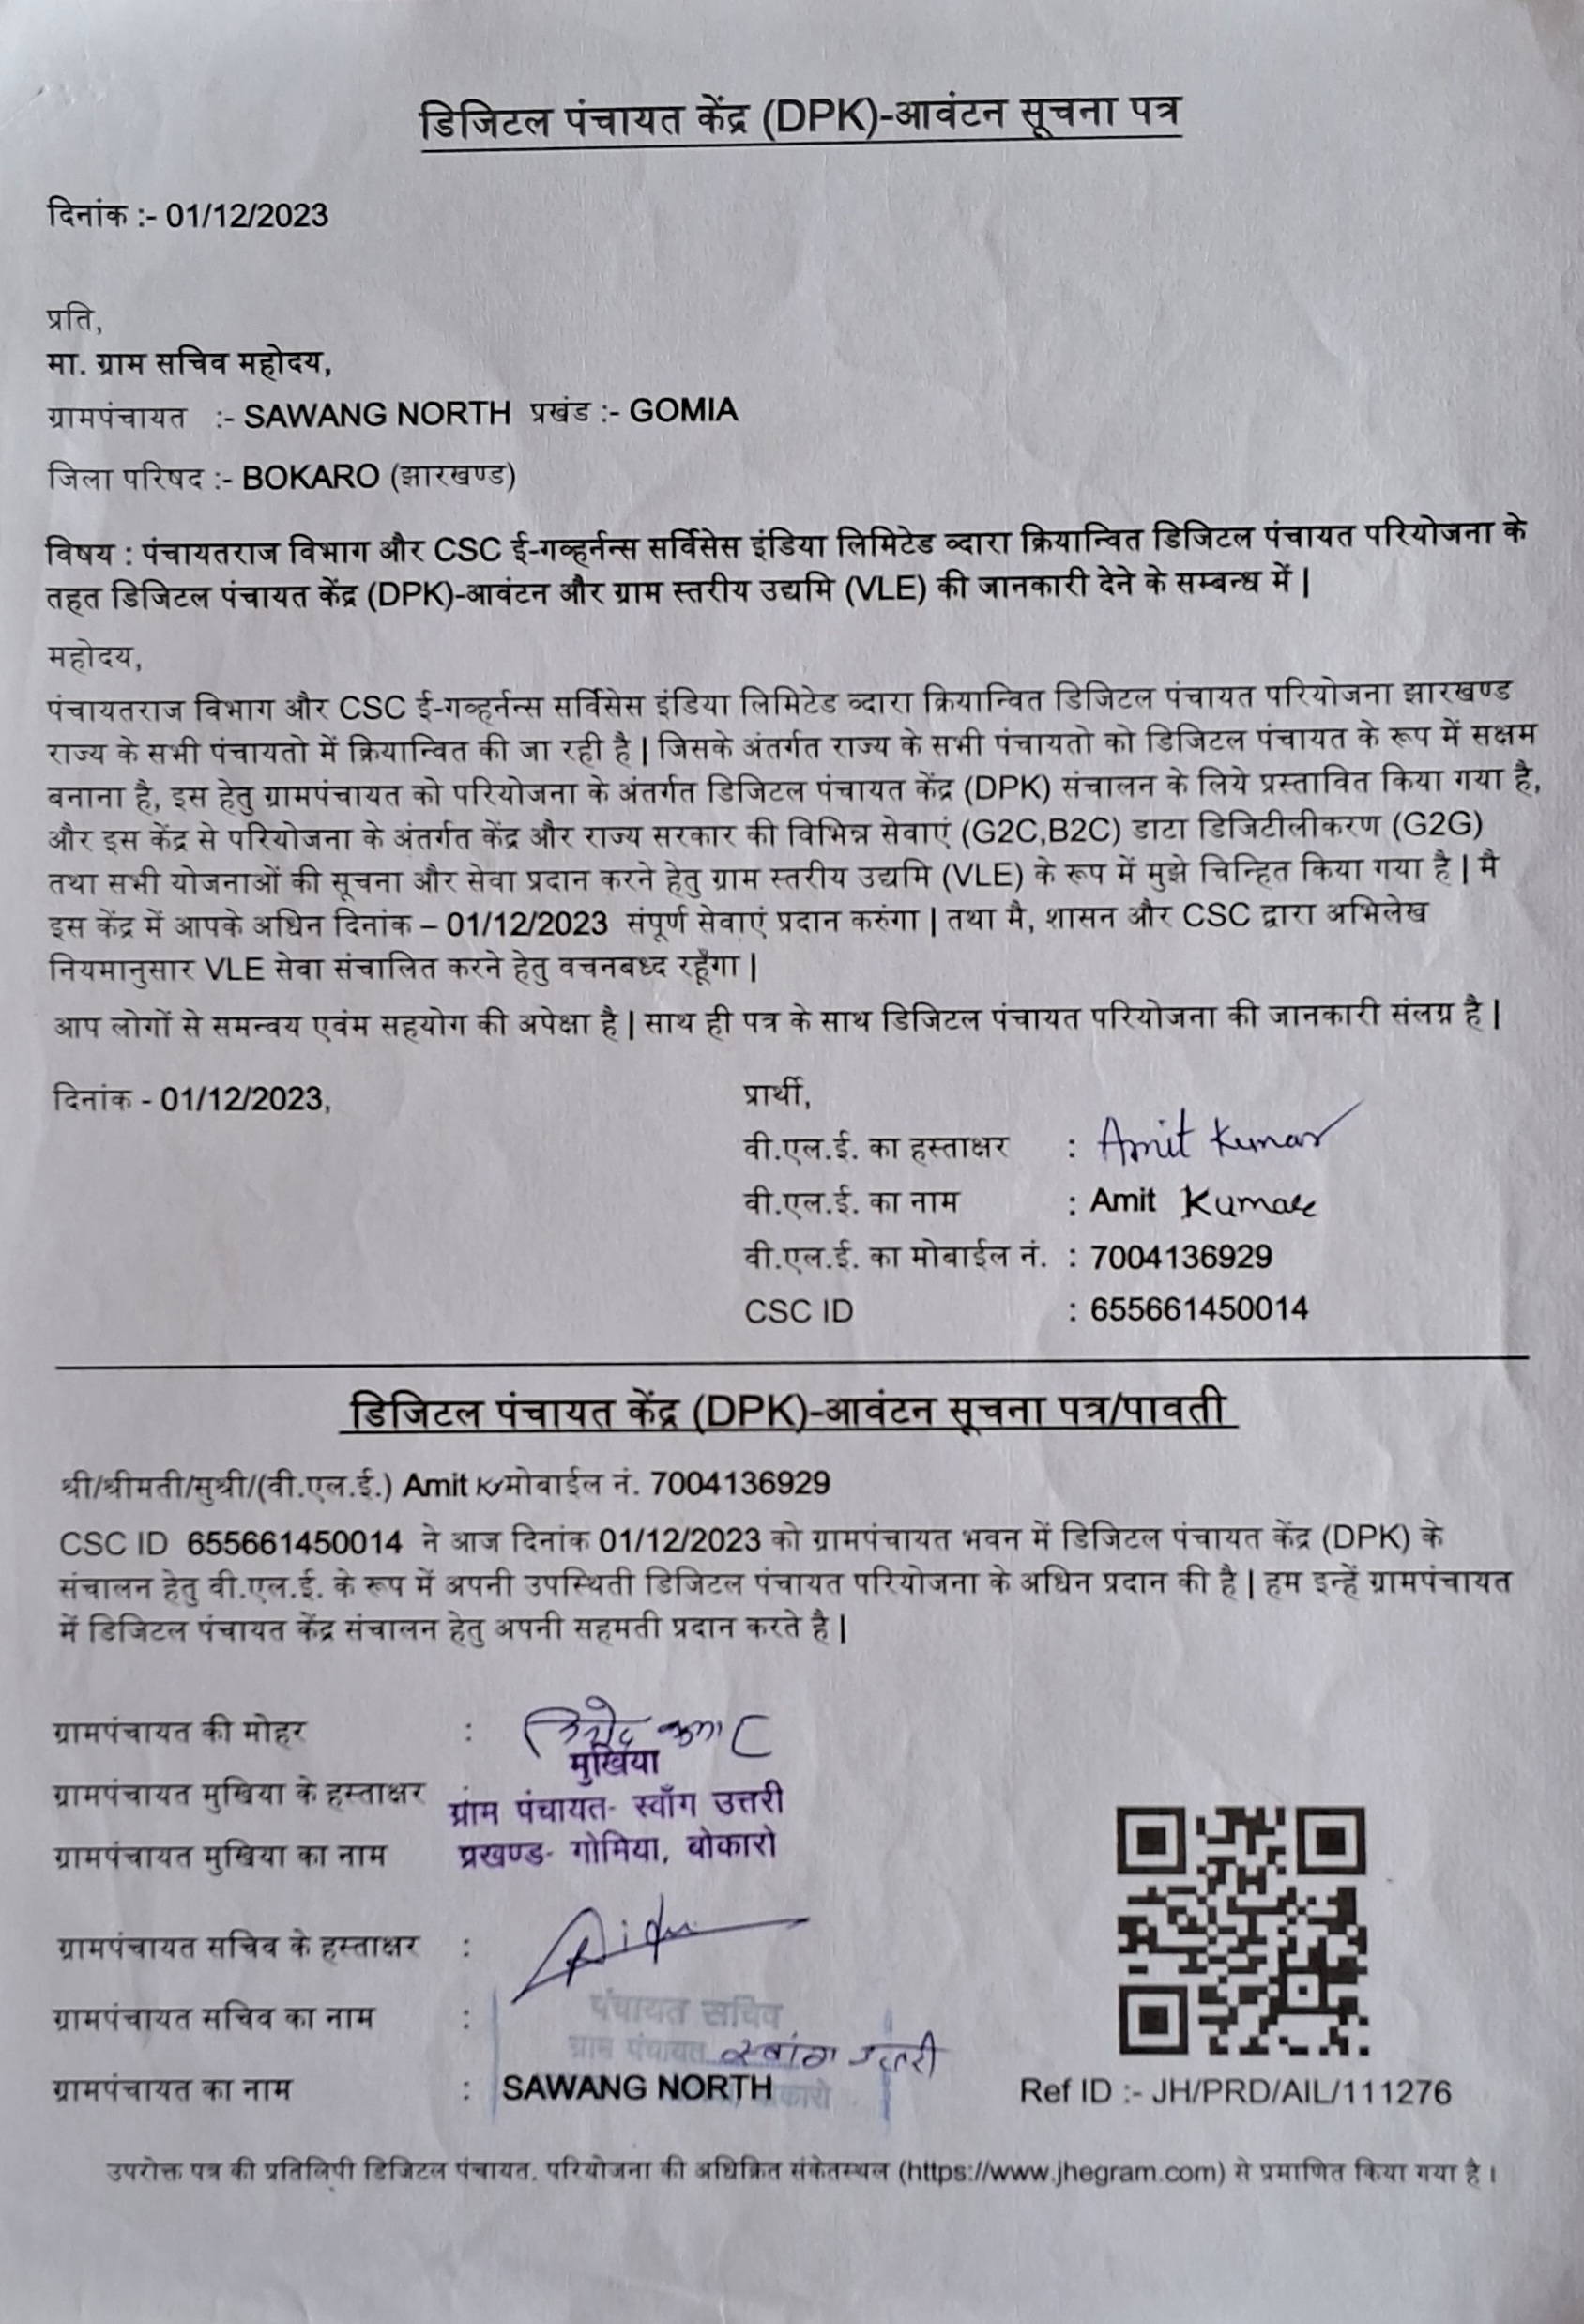 डिजिटल पंचायत केंद्र (DPK)-आवंटन सूचना पत्र
दिनांक :- 01/12/2023
प्रति,
मा. ग्राम सचिव महोदय,
ग्रामपंचायत :- SAWANG NORTH प्रखंड :- GOMIA
जिला परिषद :- BOKARO (झारखण्ड)
विषय : पंचायतराज विभाग और CSC ई-गव्हर्नन्स सर्विसेस इंडिया लिमिटेड व्दारा क्रियान्वित डिजिटल पंचायत परियोजना के
तहत डिजिटल पंचायत केंद्र (DPK)-आवंटन और ग्राम स्तरीय उद्यमि (VLE) की जानकारी देने के सम्बन्ध में |
महोदय,
पंचायतराज विभाग और CSC ई-गव्हर्नन्स सर्विसेस इंडिया लिमिटेड व्दारा क्रियान्वित डिजिटल पंचायत परियोजना झारखण्ड
राज्य के सभी पंचायतो में क्रियान्वित की जा रही है | जिसके अंतर्गत राज्य के सभी पंचायतो को डिजिटल पंचायत के रूप में सक्षम
बनाना है, इस हेतु ग्रामपंचायत को परियोजना के अंतर्गत डिजिटल पंचायत केंद्र (DPK) संचालन के लिये प्रस्तावित किया गया है,
और इस केंद्र से परियोजना के अंतर्गत केंद्र और राज्य सरकार की विभिन्न सेवाएं (G2C,B2C) डाटा डिजिटीलीकरण (G2G)
तथा सभी योजनाओं की सूचना और सेवा प्रदान करने हेतु ग्राम स्तरीय उद्यमि (VLE) के रूप में मुझे चिन्हित किया गया है | मै
इस केंद्र में आपके अधिन दिनांक – 01/12/2023 संपूर्ण सेवाएं प्रदान करुंगा | तथा मै, शासन और CSC द्वारा अभिलेख
नियमानुसार VLE सेवा संचालित करने हेतु वचनबध्द रहूँगा |
आप लोगों से समन्वय एवंम सहयोग की अपेक्षा है | साथ ही पत्र के साथ डिजिटल पंचायत परियोजना की जानकारी संलग्न है |
दिनांक - 01/12/2023,
प्रार्थी,
वी.एल.ई. का हस्ताक्षर : Amit Kumar
वी.एल.ई. का नाम : Amit Kumar
वी.एल.ई. का मोबाईल नं. : 7004136929
CSC ID : 655661450014
डिजिटल पंचायत केंद्र (DPK)-आवंटन सूचना पत्र/पावती
श्री/श्रीमती/सुश्री/(वी.एल.ई.) Amit Kr मोबाईल नं. 7004136929
CSC ID 655661450014 ने आज दिनांक 01/12/2023 को ग्रामपंचायत भवन में डिजिटल पंचायत केंद्र (DPK) के
संचालन हेतु वी.एल.ई. के रूप में अपनी उपस्थिती डिजिटल पंचायत परियोजना के अधिन प्रदान की है | हम इन्हें ग्रामपंचायत
में डिजिटल पंचायत केंद्र संचालन हेतु अपनी सहमती प्रदान करते है |
ग्रामपंचायत की मोहर :
मुखिया
ग्रामपंचायत मुखिया के हस्ताक्षर : ग्राम पंचायत- स्वाँग उत्तरी
ग्रामपंचायत मुखिया का नाम प्रखण्ड- गोमिया, बोकारो
ग्रामपंचायत सचिव के हस्ताक्षर :
पंचायत सचिव
ग्रामपंचायत सचिव का नाम :
ग्राम पंचायत स्वांग उत्तरी
ग्रामपंचायत का नाम : SAWANG NORTH
Ref ID :- JH/PRD/AIL/111276
उपरोक्त पत्र की प्रतिलिपी डिजिटल पंचायत. परियोजना की अधिक्रित संकेतस्थल (https://www.jhegram.com) से प्रमाणित किया गया है ।